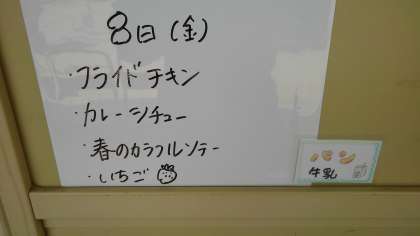 8日(金)
・フライドチキン
・カレーシチュー
・春のカラフルソテー
・いちご
パン
牛乳